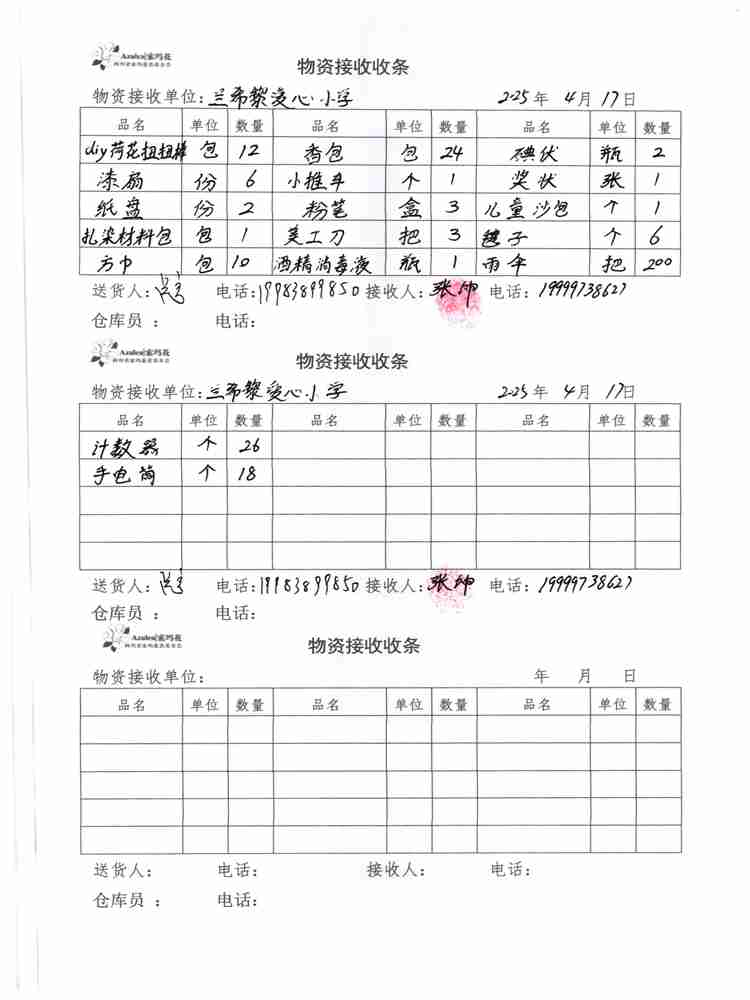 Azalea|索玛花
物资接收收条
物资接收单位：兰布黎爱心小学 2025年 4月 17日
品名 单位 数量 品名 单位 数量 品名 单位 数量
diy荷花扭扭棒 包 12 香包 包 24 碘伏 瓶 2
漆扇 份 6 小推车 个 1 奖状 张 1
纸盘 份 2 粉笔 盒 3 儿童沙包 个 1
扎染材料包 包 1 美工刀 把 3 毽子 个 6
方巾 包 10 酒精消毒液 瓶 1 雨伞 把 200
送货人： 电话：19983899850 接收人：张坤 电话：19999738627
仓库员 ： 电话：
Azalea|索玛花
物资接收收条
物资接收单位：兰布黎爱心小学 2025年 4月 17日
品名 单位 数量 品名 单位 数量 品名 单位 数量
计数器 个 26
手电筒 个 18
送货人： 电话：19983899850 接收人：张坤 电话：19999738627
仓库员 ： 电话：
Azalea|索玛花
物资接收收条
物资接收单位： 年 月 日
品名 单位 数量 品名 单位 数量 品名 单位 数量
送货人： 电话： 接收人： 电话：
仓库员 ： 电话：